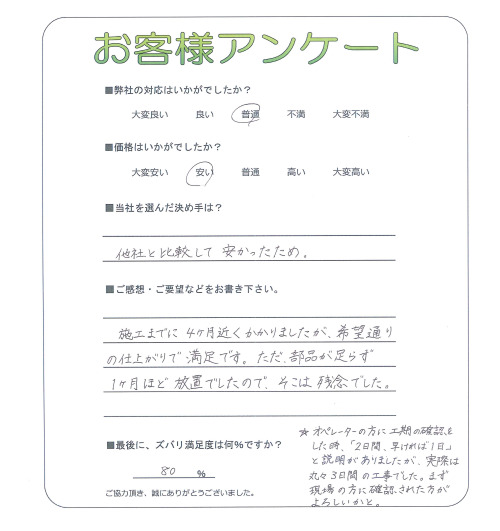 お客様アンケート
■弊社の対応はいかがでしたか？
大変良い 良い 普通 不満 大変不満
■価格はいかがでしたか？
大変安い 安い 普通 高い 大変高い
■当社を選んだ決め手は？
他社と比較して安かったため。
■ご感想・ご要望などをお書き下さい。
施工までに4ヶ月近くかかりましたが、希望通り
の仕上がりで満足です。ただ、部品が足らず
1ヶ月ほど放置でしたので、そこは残念でした。
■最後に、ズバリ満足度は何%ですか？
80 %
ご協力頂き、誠にありがとうございました。
★ オペレーターの方に工期の確認を
した時、「2日間、早ければ1日」
と説明がありましたが、実際は
丸々3日間の工事でした。まず
現場の方に確認された方が
よろしいかと。